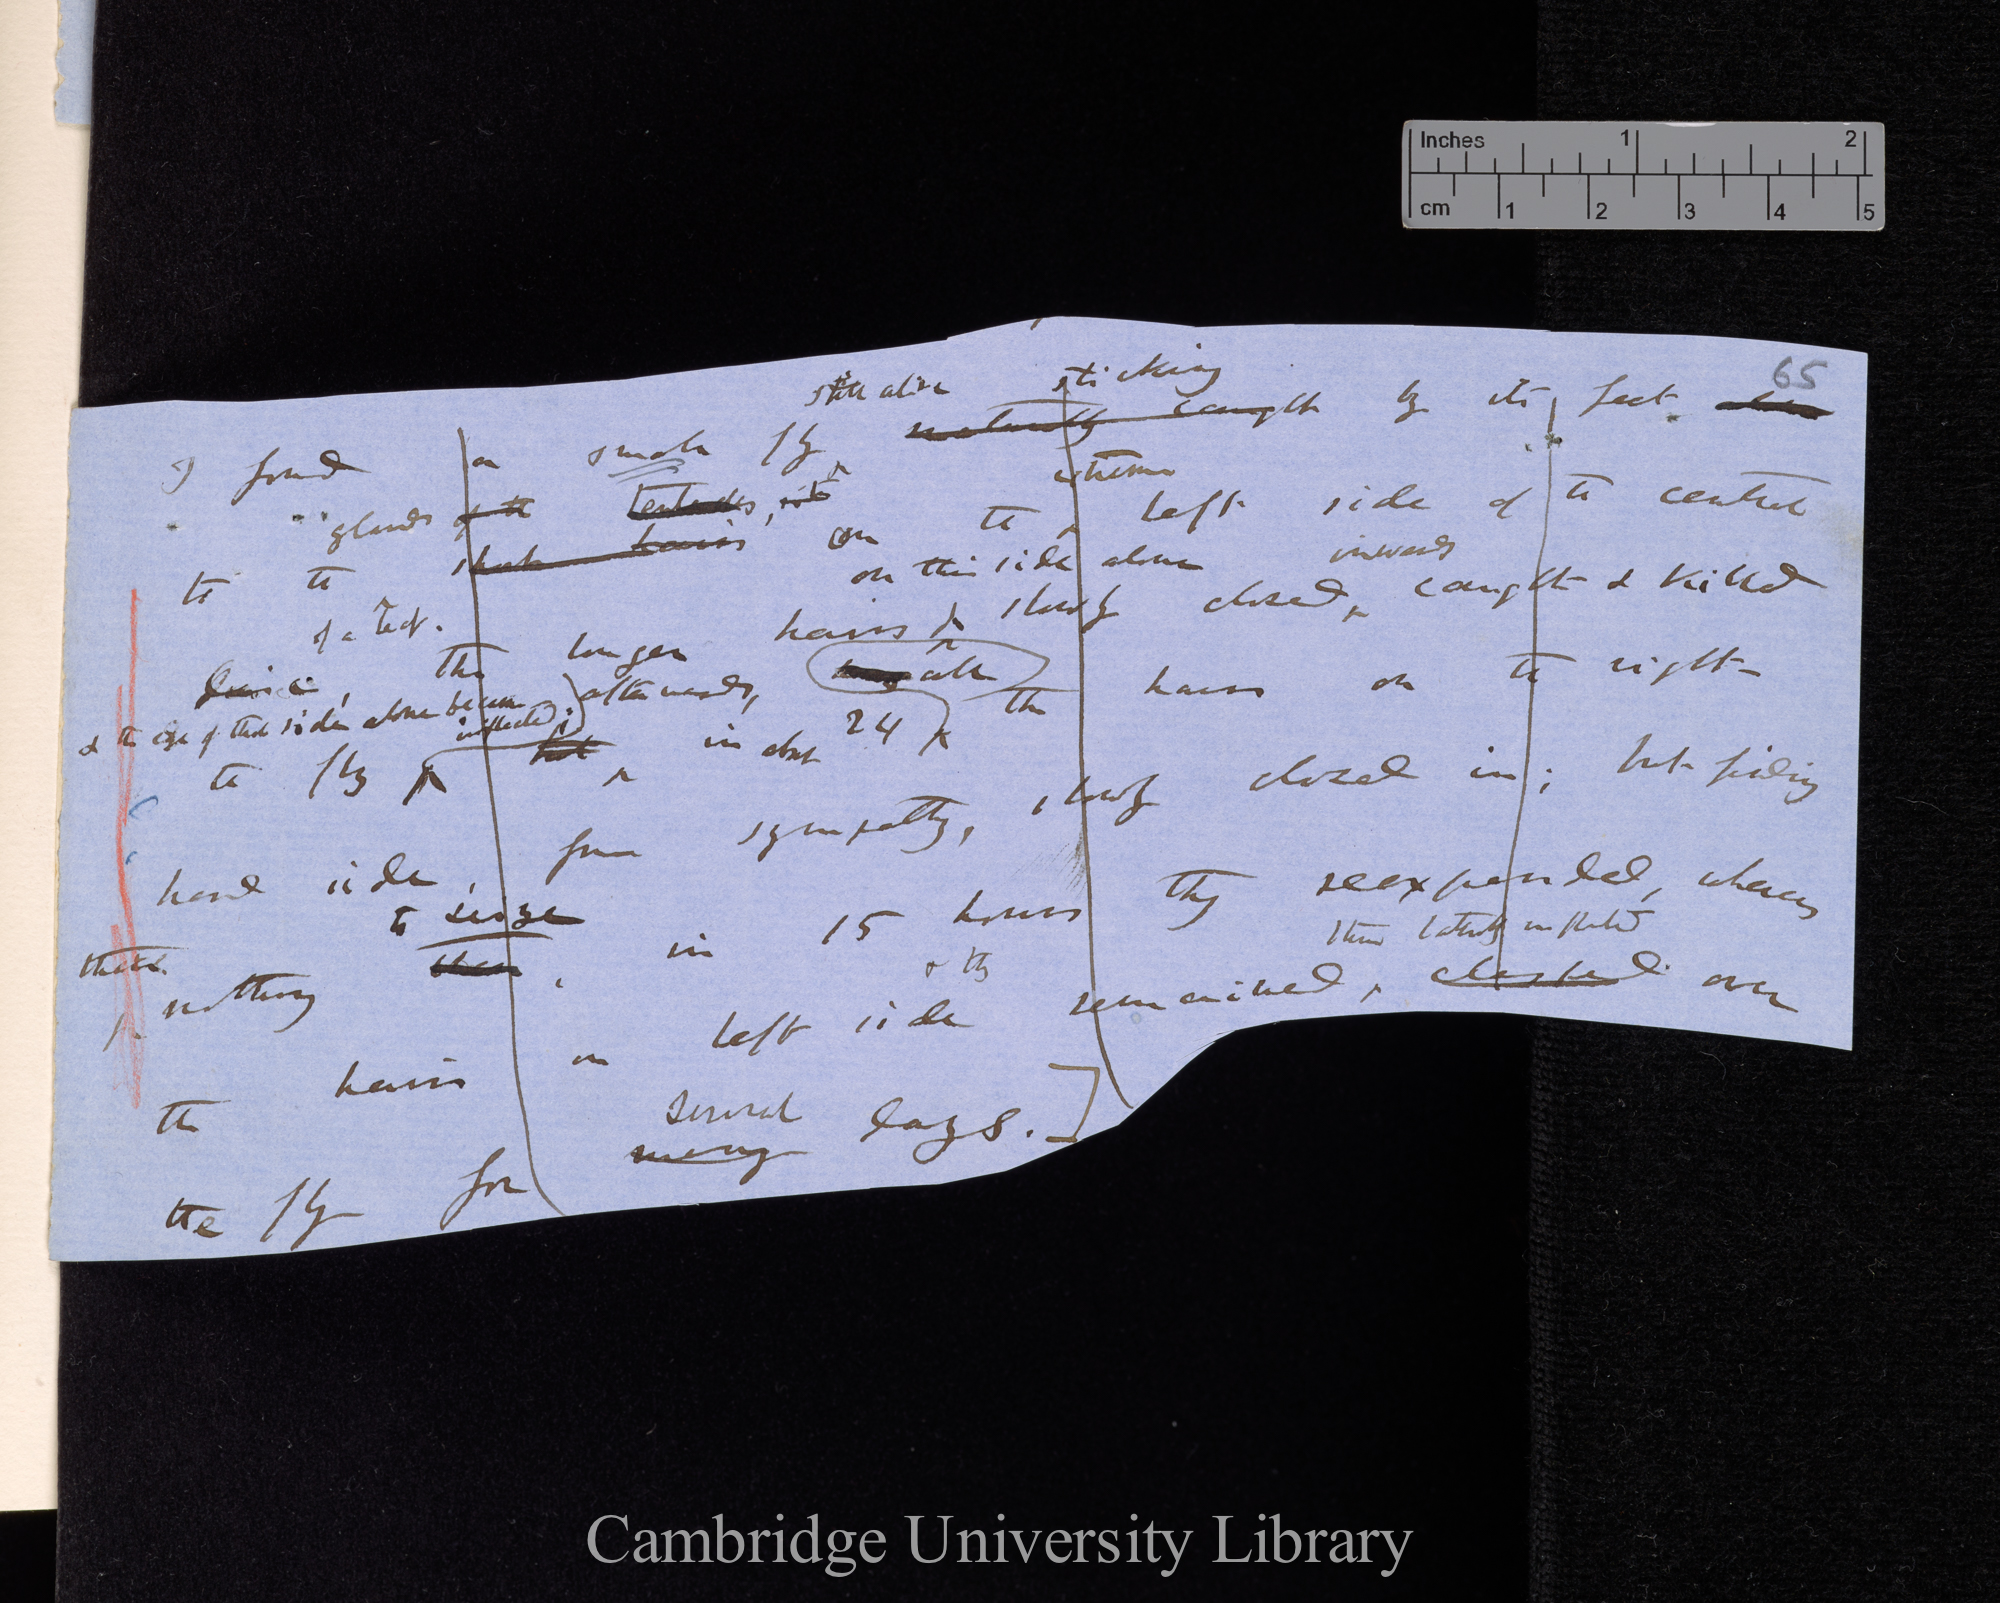 Inches 1 2
cm 1 2 3 4 5
65
still alive sticking
I found a small fly naturally caught by its feet
glands of the tentacles, extreme
to the short hairs on the left side of the central
of a leaf. on this side alone inwards
the longer hairs slowly closed, caught & killed
& the edge of that side alone became inflected; afterwards, all
the fly but in about 24 the hairs on the right
hand side, from sympathy, slowly closed in; but finding
to seize
nothing there, in 15 hours they reexpanded, whereas
& thus laterally inflected
the hairs on left side remained, clasped over
several
the fly for many days.]
Cambridge University Library